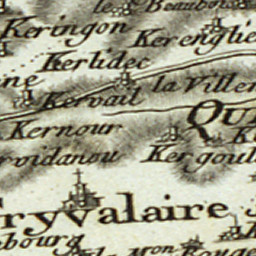 le Beaubois
Keringon
Kerenglie
Kerlidec
ne
la Viller
Kervail
QU
Kernour
Kergoul
rvidanou
ryvalaire
bourg
Mon Rouge